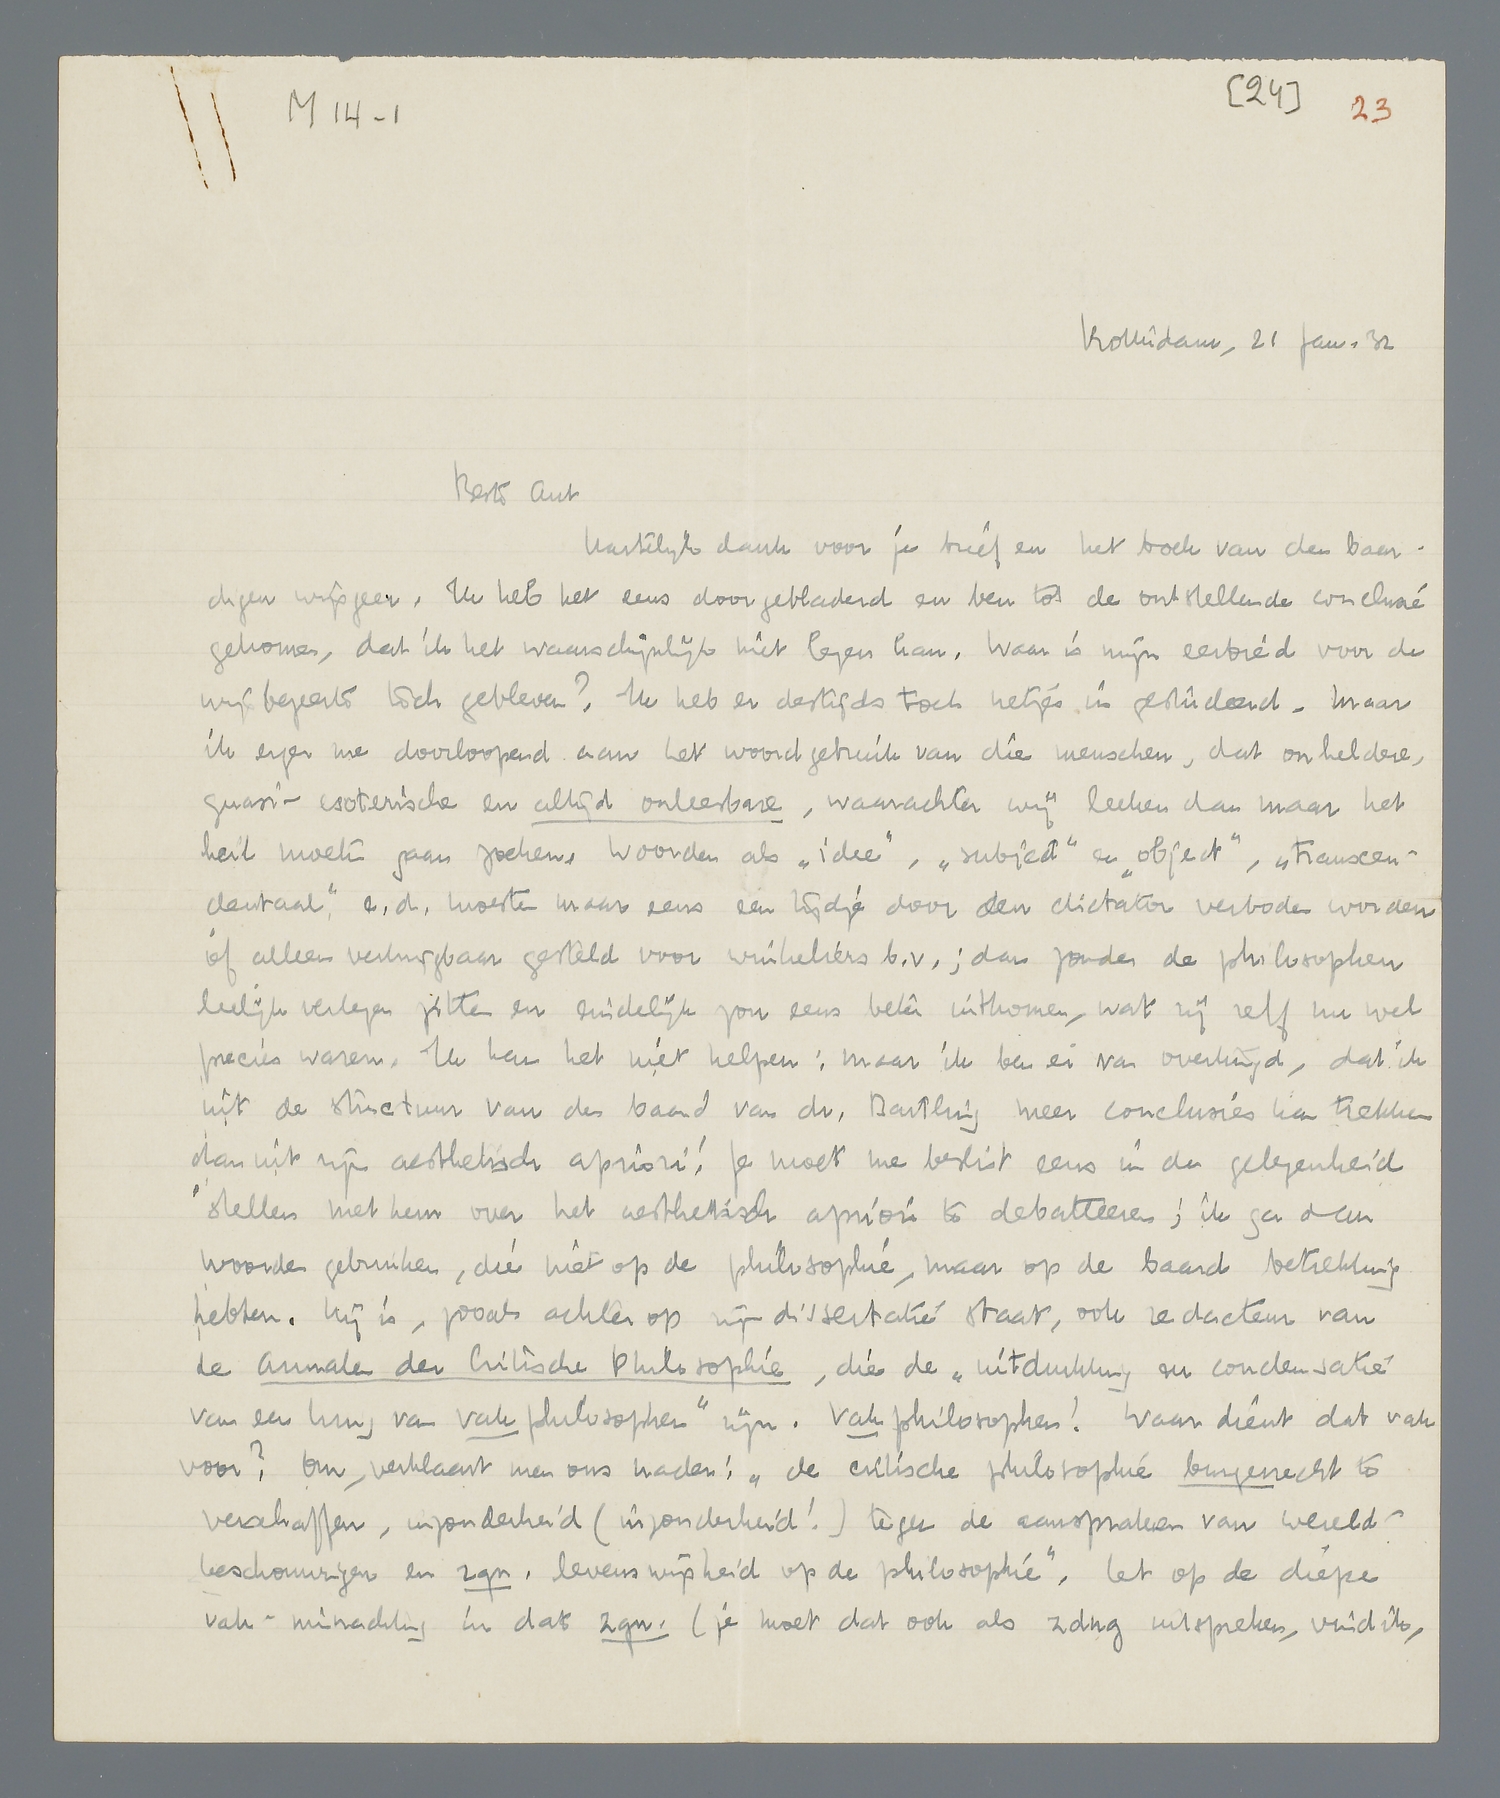 M 14-1
[24] 23
Rotterdam, 21 Jan. 32
Beste Ant
Hartelijk dank voor je brief en het boek van den baar-
digen wijsgeer. Ik heb het eens doorgebladerd en ben tot de ontstellende conclusie
gekomen, dat ik het waarschijnlijk niet lezen kan. Waar is mijn eerbied voor de
wijsbegeerte tòch gebleven? Ik heb er destijds toch netjes in gestudeerd. Maar
ik erger me doorloopend aan het woordgebruik van die menschen, dat onheldere,
quasi-esoterische en altijd onleesbare, waarachter wij leeken dan maar het
heil moeten gaan zoeken. Woorden als „idee", „subject" en „object", „transcen-
dentaal" e.d. moesten maar eens een tijdje door den dictator verboden worden
òf alleen verkrijgbaar gesteld voor winkeliers b.v.; dan zouden de philosophen
leelijk verlegen zitten en eindelijk zou eens beter uitkomen, wat zij zelf nu wel
precies waren. Ik kan het niet helpen: maar ik ben er van overtuigd, dat ik
uit de structuur van den baard van dr. Bartling meer conclusies kan trekken
dan uit zijn aesthetisch apriori! Je moet me beslist eens in de gelegenheid
stellen met hem over het aesthetisch apriori te debatteeren; ik ga dan
woorden gebruiken, die niet op de philosophie, maar op de baard betrekking
hebben. Hij is, zooals achter op zijn dissertatie staat, ook redacteur van
de Annalen der Critische Philosophie, die de „uitdrukking en condensatie
van een kring van vakphilosophen" zijn. Vakphilosophen! Waar dient dat vak
voor? Om, verklaart men ons nader: „de critische philosophie burgerrecht te
verschaffen, inzonderheid (inzonderheid!) tegen de aanspraken van wereld-
beschouwingen en zgn. levenswijsheid op de philosophie". Let op de diepe
vak-minachting in dat zgn. (je moet dat ook als zdng uitspreken, vind ik,